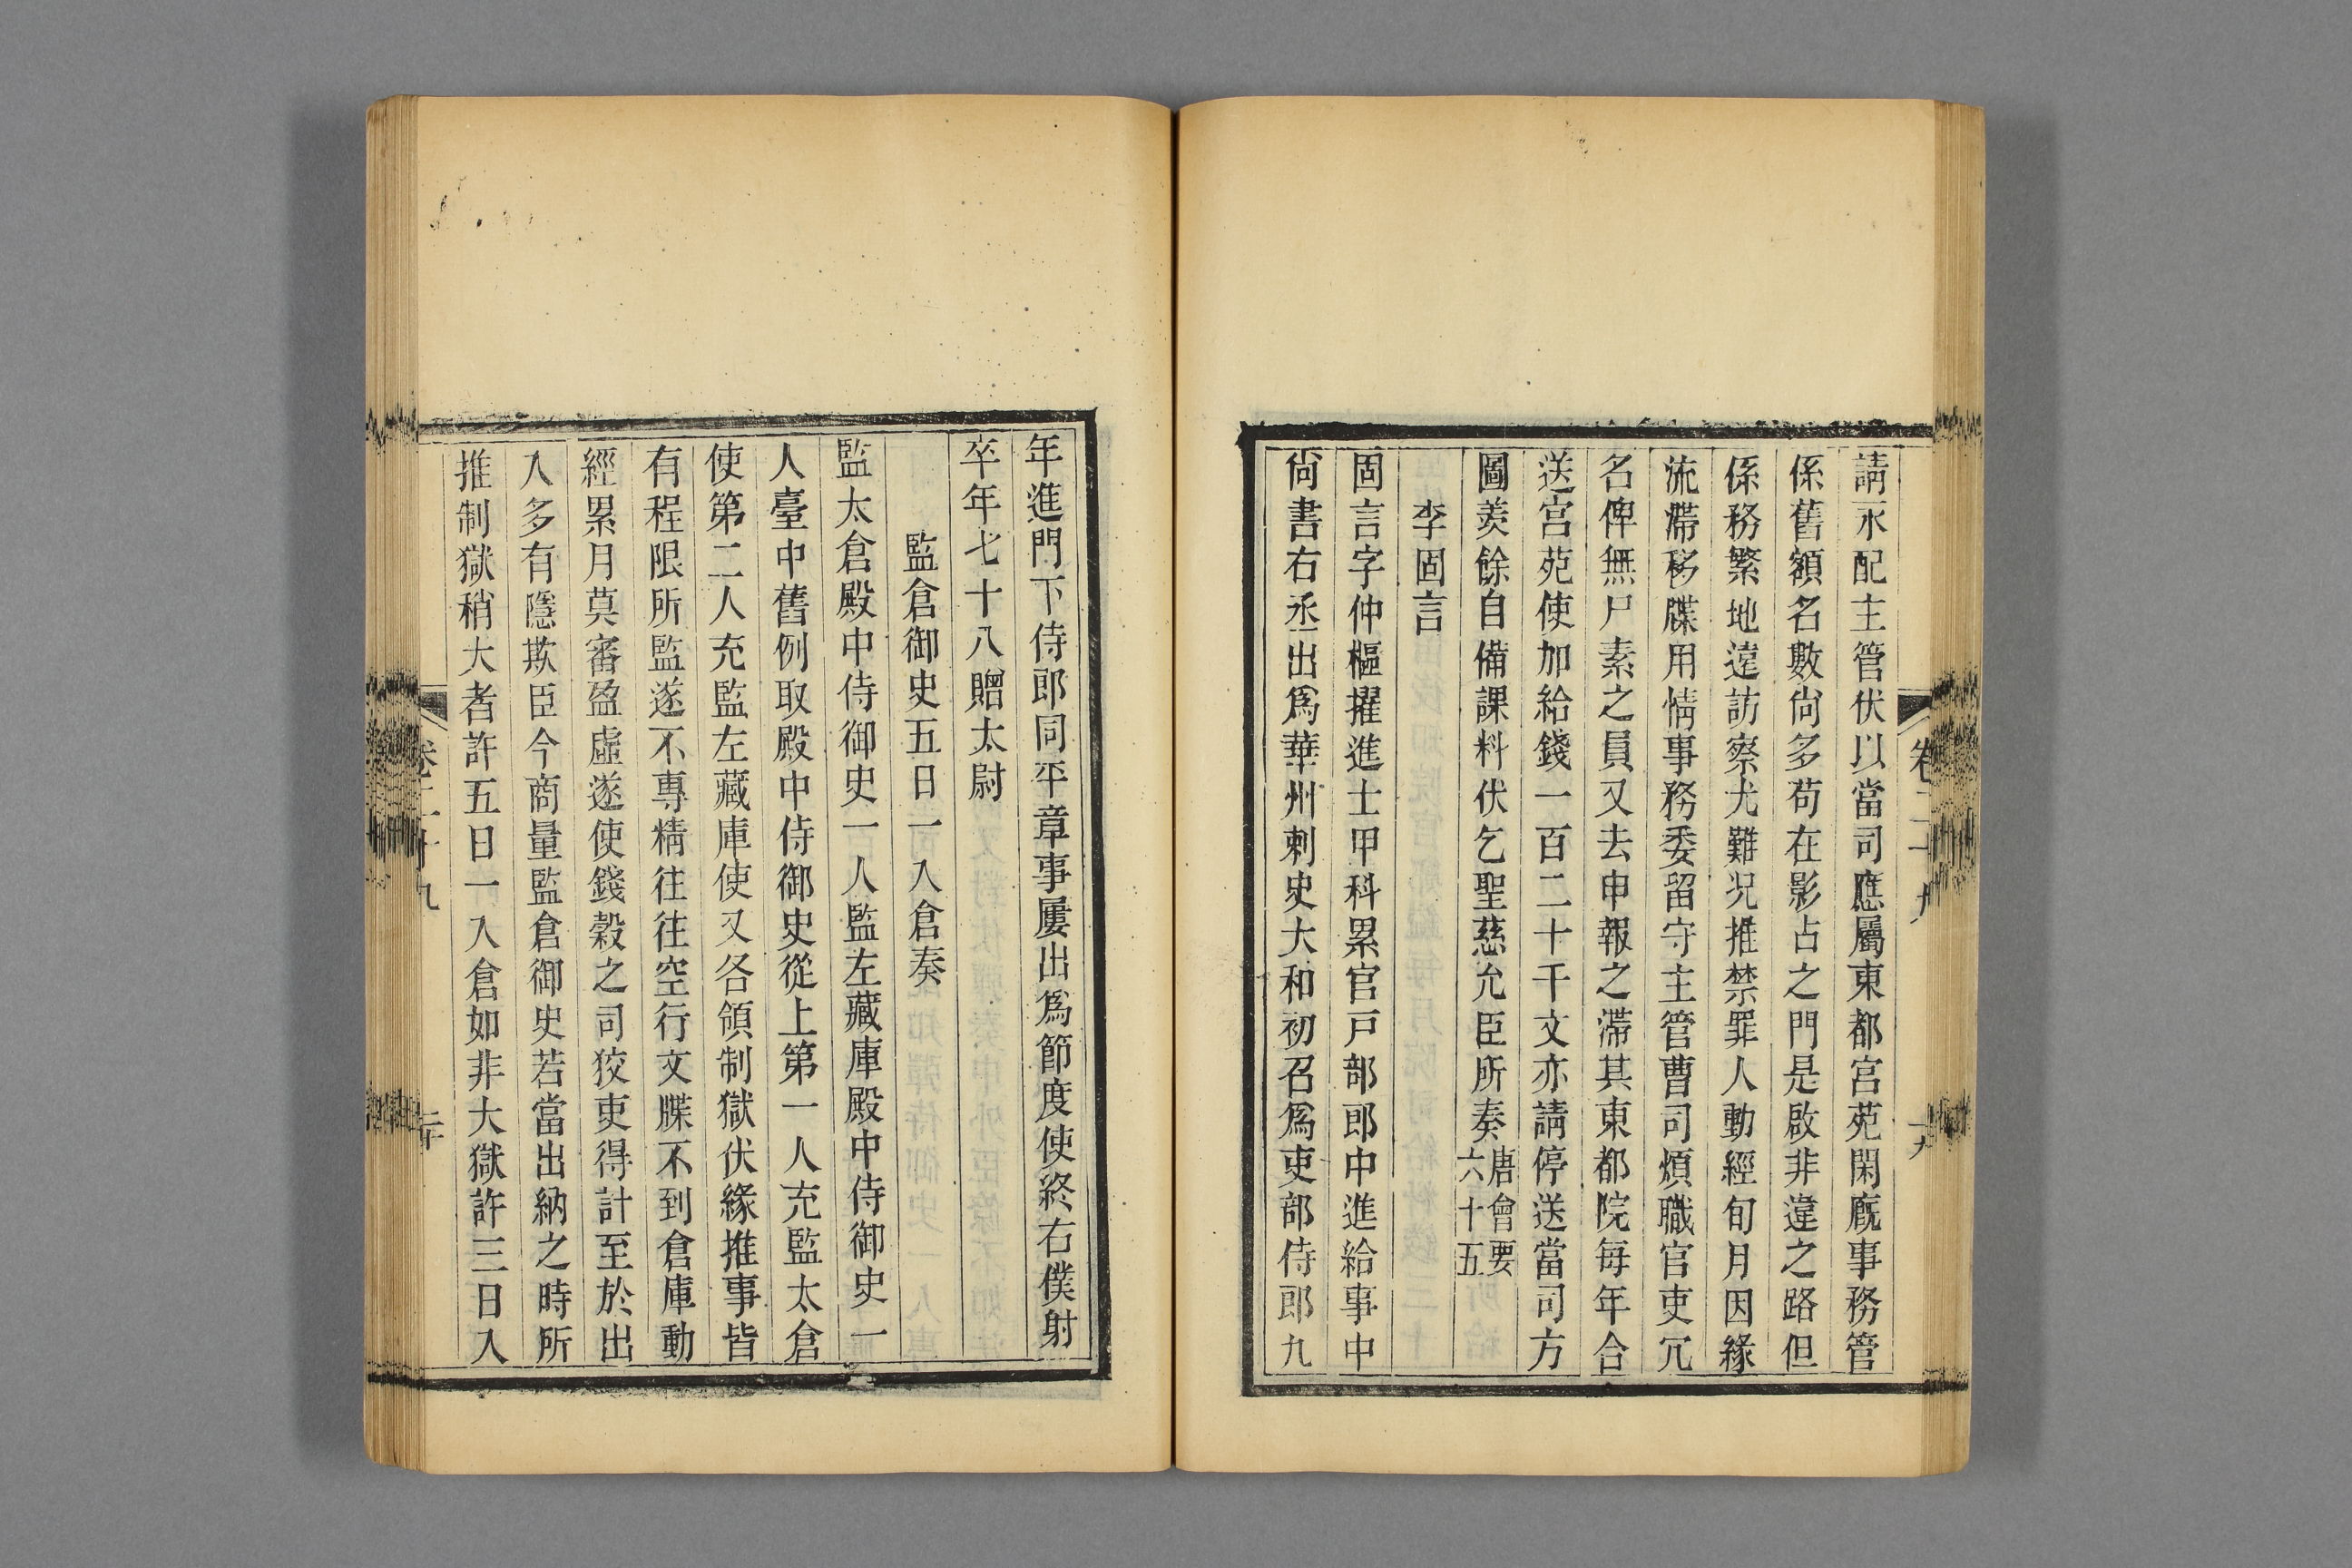 請永配主管伏以當司應屬東都宮苑閑廐事務管
係舊額名數尙多苟在影占之門是啟非違之路但
係務繁地遠訪察尤難況推禁罪人動經旬月因緣
流滯移牒用情事務委留守主管曹司煩職官吏冗
名俾無尸素之員又去申報之滯其東都院每年合
送宮苑使加給錢一百二十千文亦請停送當司方
圖羨餘自備課料伏乞聖慈允臣所奏唐會要六十五
李固言
固言字仲樞擢進士甲科累官戸部郎中進給事中
尙書右丞出爲華州刺史大和初召爲吏部侍郎九
年進門下侍郎同平章事屢出爲節度使終右僕射
卒年七十八贈太尉
監倉御史五日一入倉奏
監太倉殿中侍御史一人監左藏庫殿中侍御史一
人臺中舊例取殿中侍御史從上第一人充監太倉
使第二人充監左藏庫使又各領制獄伏緣推事皆
有程限所監遂不專精往往空行文牒不到倉庫動
經累月莫審盈虛遂使錢穀之司狡吏得計至於出
入多有隱欺臣今商量監倉御史若當出納之時所
推制獄稍大者許五日一入倉如非大獄許三日入
卷二十九
二十